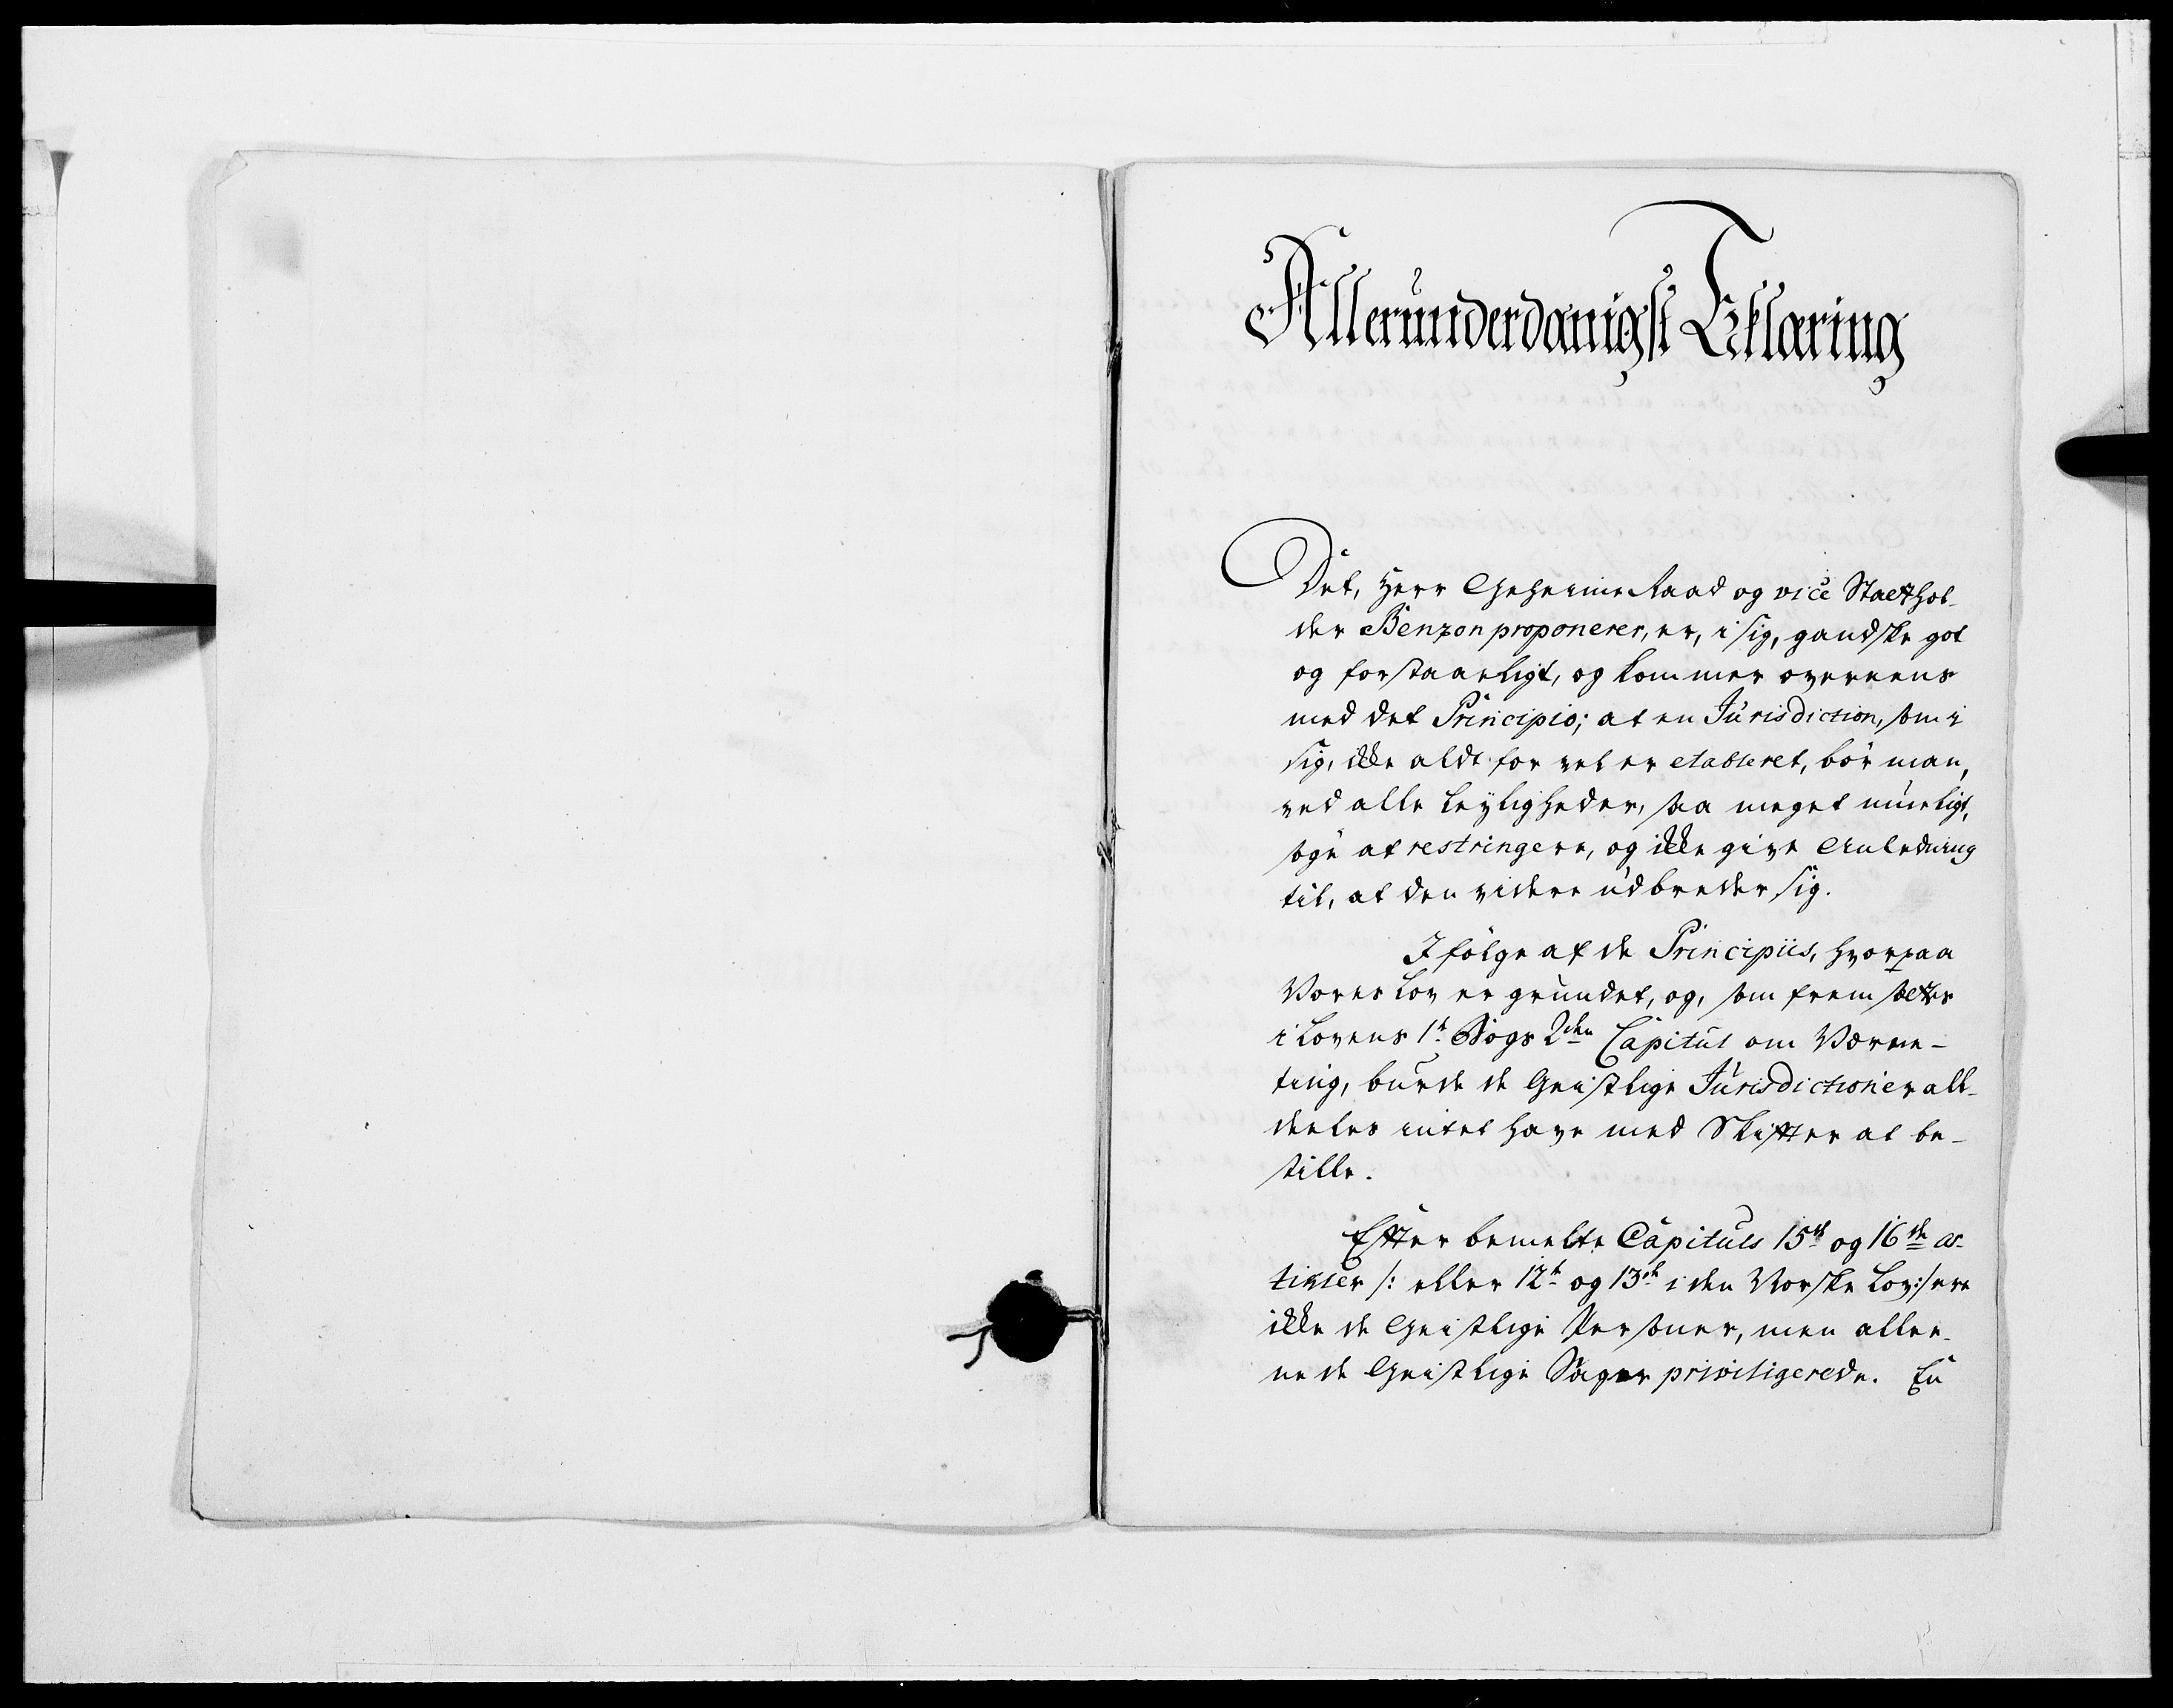 Allerunderdanigst Erklæring
Det, Herr Geheime Raad og vice Statthol-
der Benzon proponerer, er, i sig, gandske got
og forstaaeligt, og kommer overeens
med det Principio; at en Jurisdiction, som i
sig, ikke aldt for vel er etableret, bör man,
ved alle leyligheder, saa meget mueligt,
søge at restringere, og ikke give Anledning
til, at den videre udbreder sig.
I følge af de Principiis, hvorpaa
Vores Lov er grundet, og, som fremsættes
i Lovens 1te Bogs 2den Capitul om Værne-
ting, burde de Geistlige Jurisdictioner all-
deeles intet have med Skifter at be-
stille.
Efter bemelte Capituls 15de og 16de ar-
tikler /: eller 12te og 13de i den Norske Lov :/ ere
ikke de Geistlige Personer, men allee-
ne de Geistlige Sager priviligerede. En